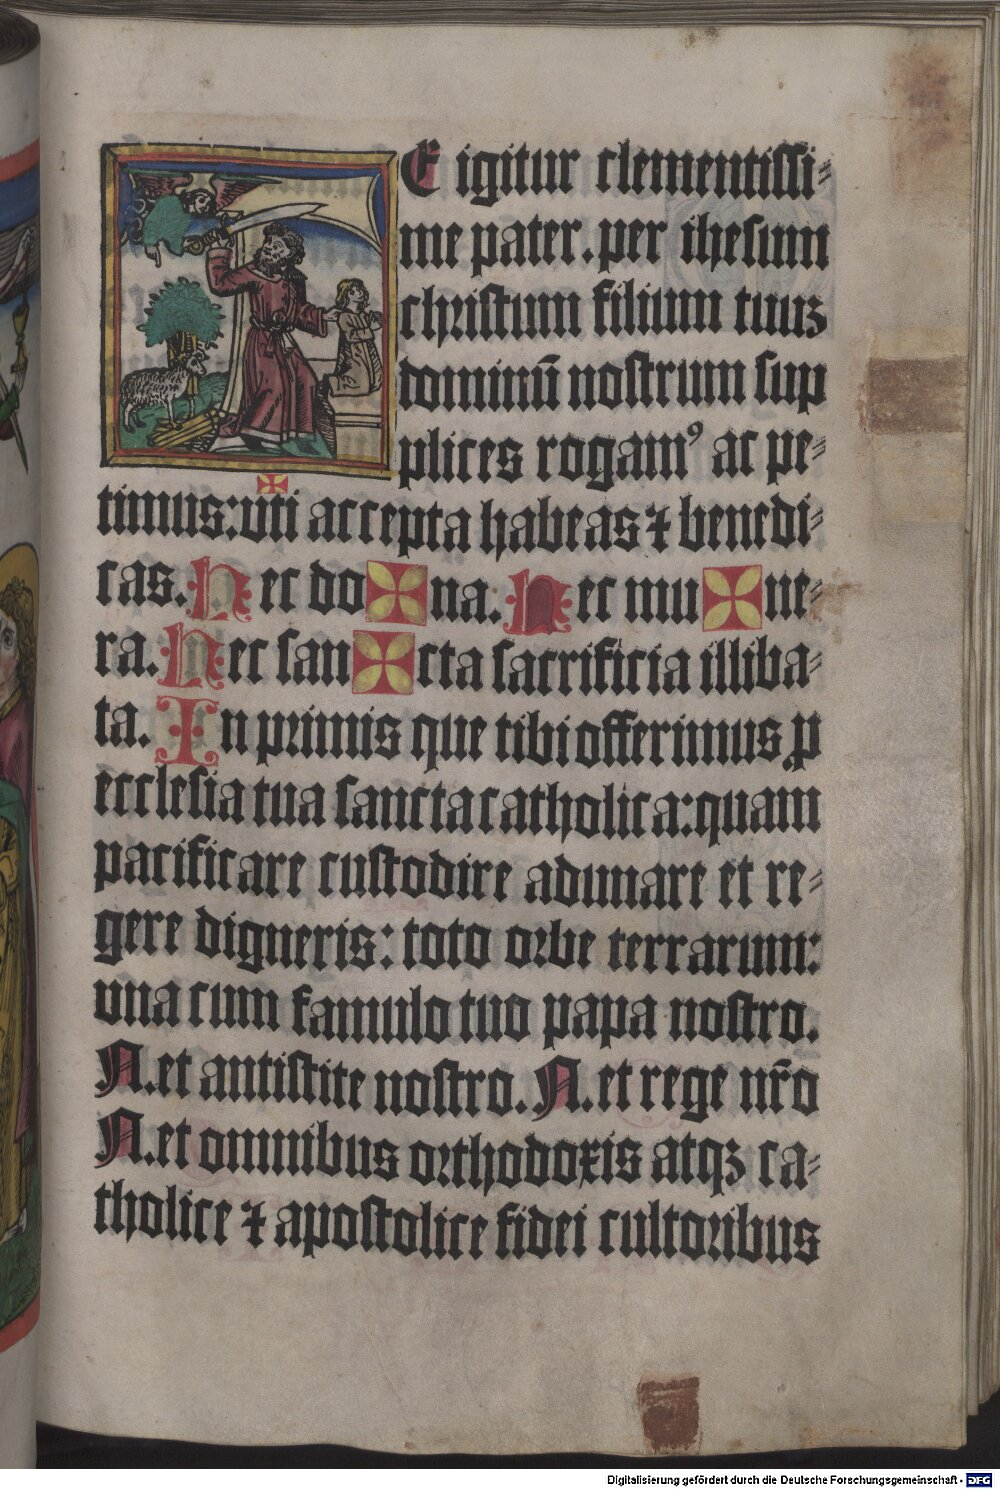 E igitur clementissi⸗
me pater. per ihesum
christum filium tuuꝫ
dominū nostrum sup
plices rogamꝰ ac pe⸗
timus: vti accepta habeas ⁊ benedi⸗
cas. Hec do✠na. Hec mu✠ne⸗
ra. Hec san✠cta sacrificia illiba⸗
ta. In primis que tibi offerimus ꝓ
ecclesia tua sancta catholica: quam
pacificare custodire adunare et re⸗
gere digneris: toto orbe terrarum:
vna cum famulo tuo papa nostro.
N. et antistite nostro. N. et rege nr̄o
N. et omnibus orthodoxis atqꝫ ca⸗
tholice ⁊ apostolice fidei cultoribus
Digitalisierung gefördert durch die Deutsche Forschungsgemeinschaft - DFG